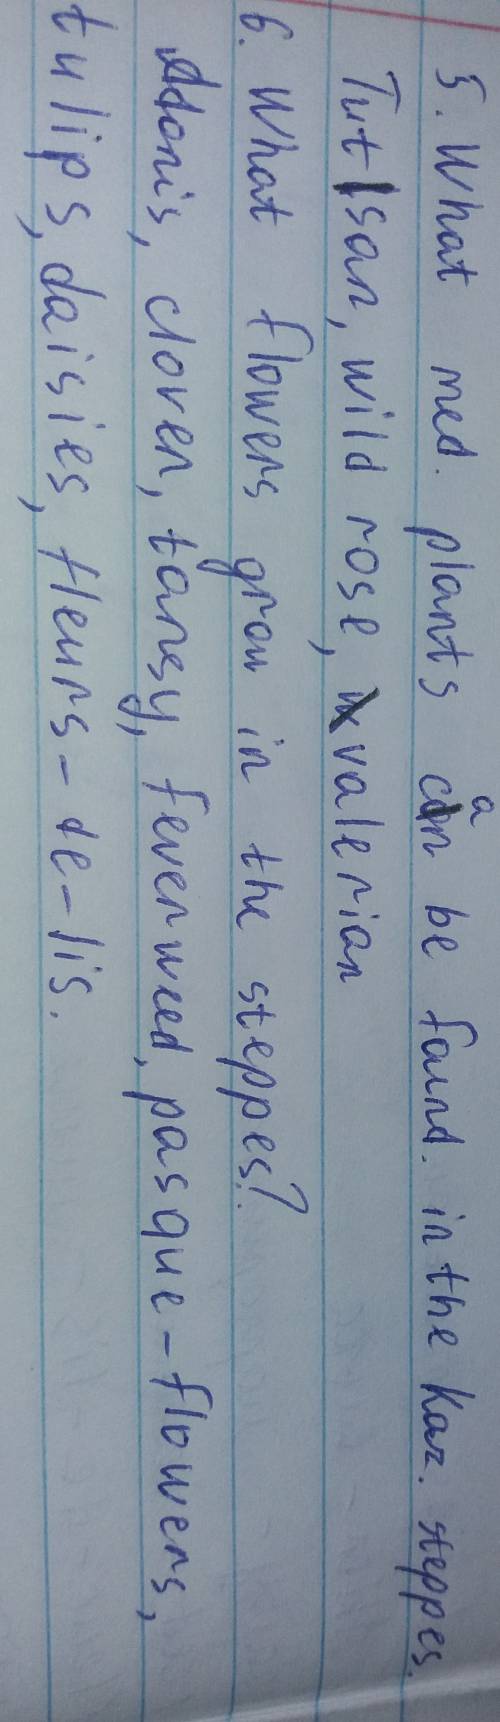 5. What med. plants can be found. in the Kaz. steppes.
Tutsan, wild rose, valerian
6. What flowers grow in the steppes?
Adonis, clover, tansy, feverweed, pasque-flowers,
tulips, daisies, fleurs-de-lis.